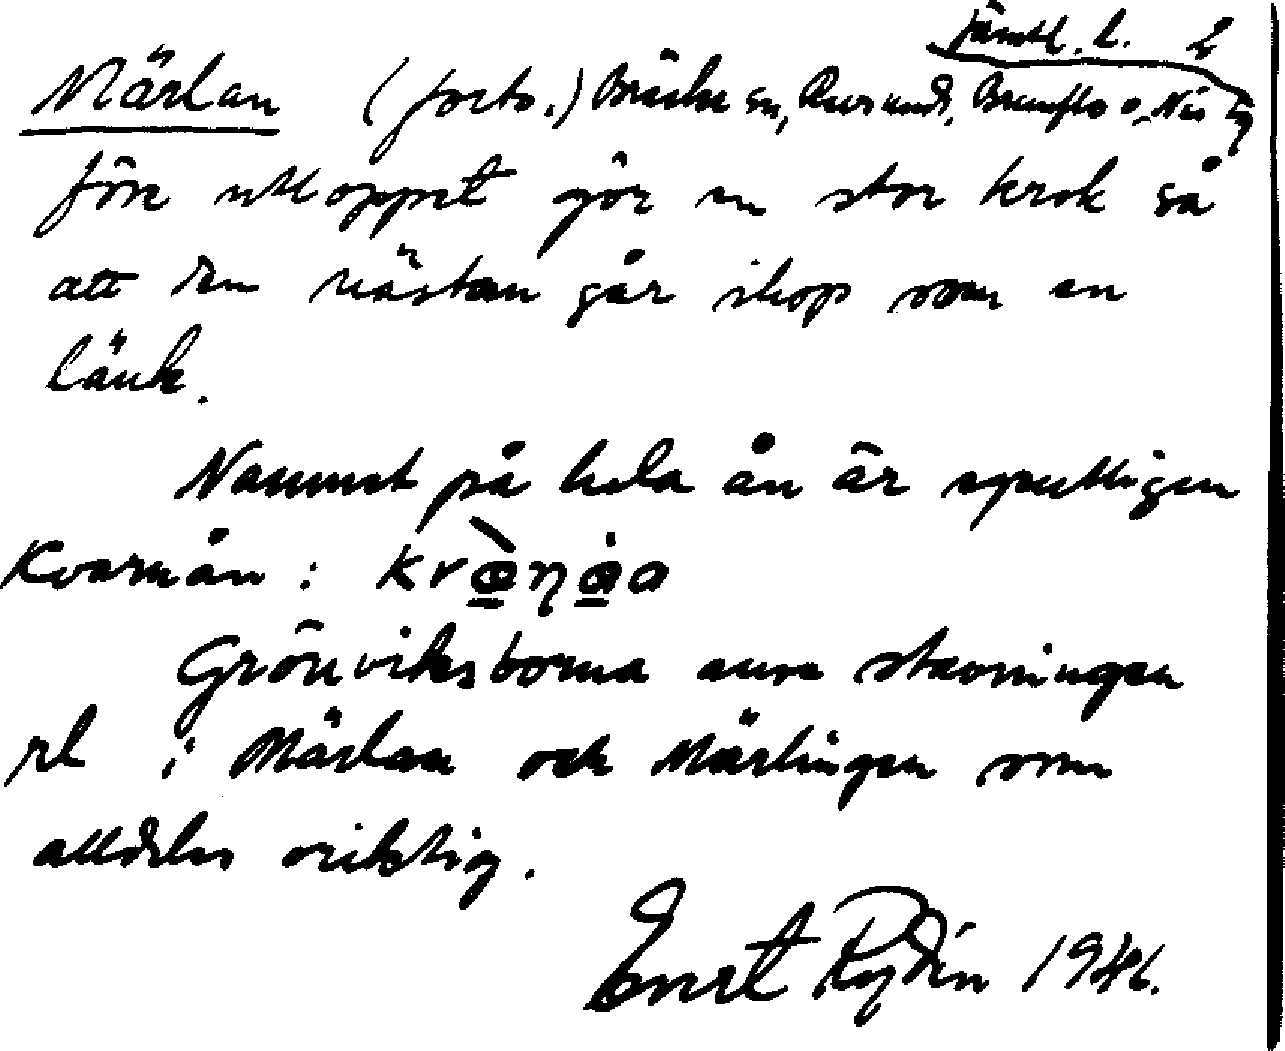 Jämtl. l. 2
Märlan (forts.) Bräcke sn, Revsunds, Brunflo o. Näs tg
före utloppet gör en stor krok så
att den nästan går ihop som en
länk.
Namnet på hela ån är egentligen
Kvarnån:
Grönviksborna anse stavningen
rl i Märlan och Märlingen som
alldeles oriktig.
Ernst Rydin 1946.